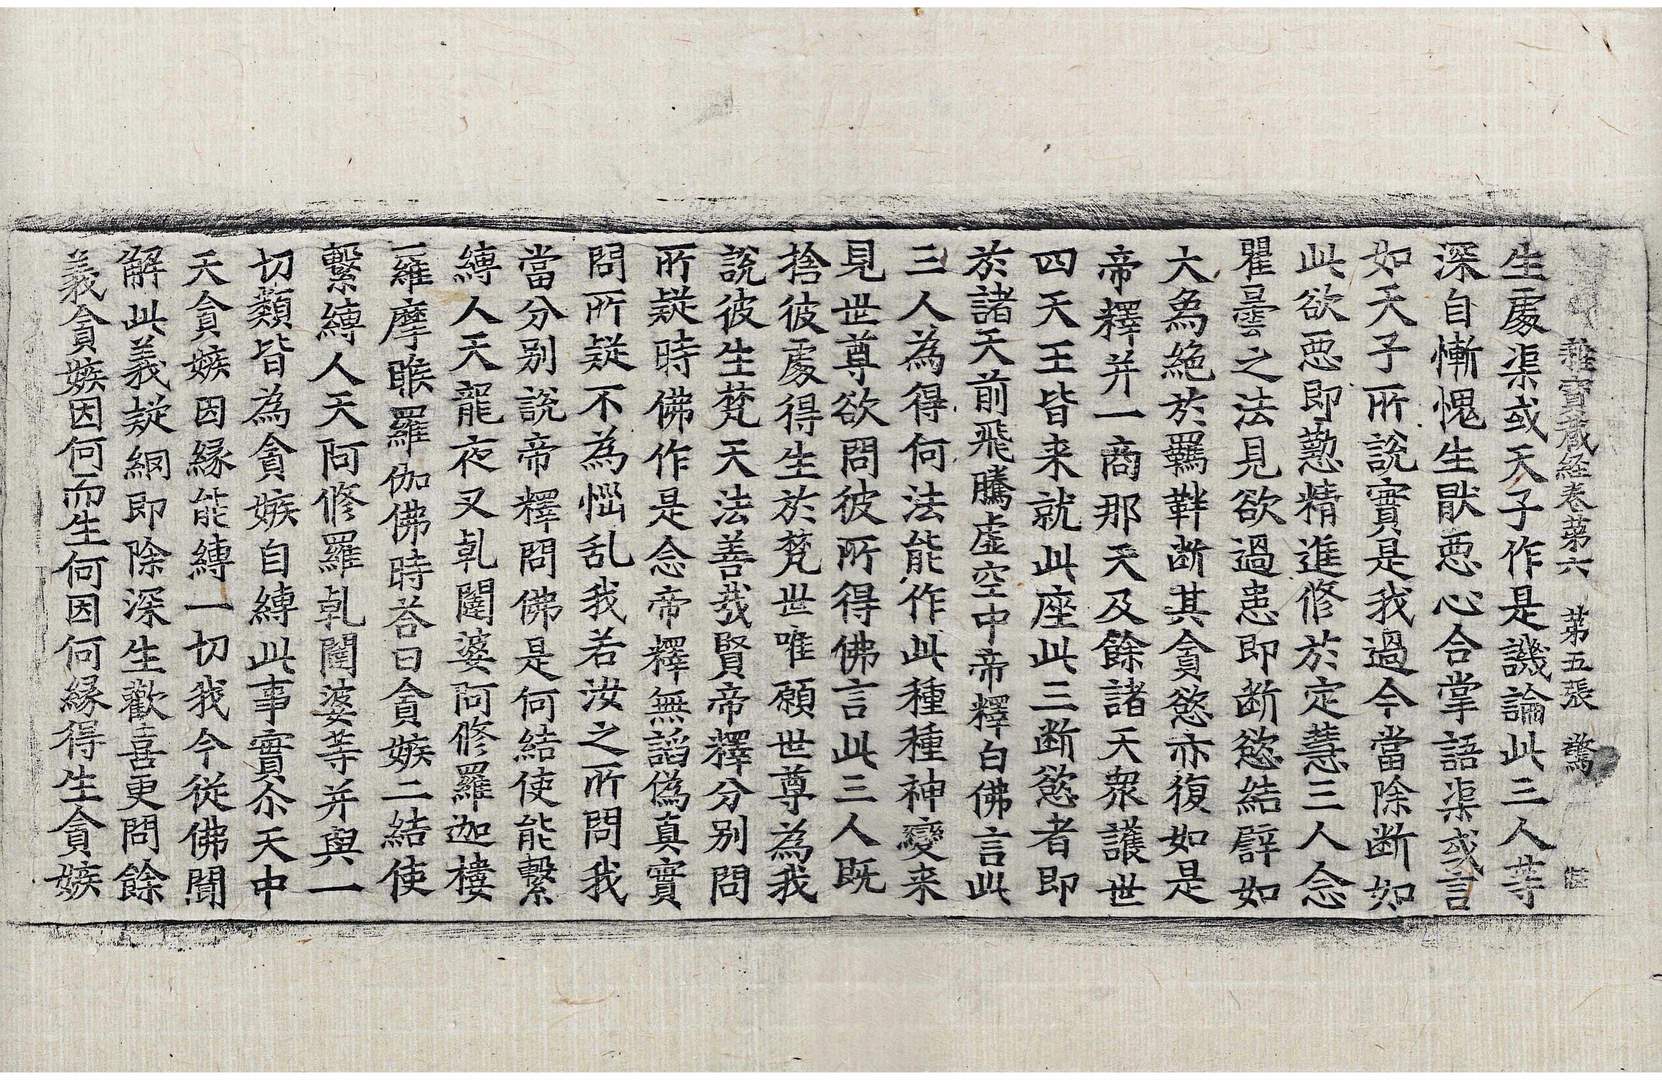 雜寶藏經卷第六 第五張 驚
生處渠或天子作是譏論此三人等
深自慚愧生猒惡心合掌語渠或言
如天子所說實是我過今當除断如
此欲惡即懃精進修於定慧三人念
瞿曇之法見欲過患即断慾結辟如
大爲絶於羈靽断其貪慾亦復如是
帝釋并一商那天及餘諸天衆護世
四天王皆来就此座此三断慾者即
於諸天前飛騰虛空中帝釋白佛言此
三人為得何法能作此種種神變来
見世尊欲問彼所得佛言此三人既
捨彼處得生於梵世唯願世尊為我
說彼生梵天法善哉賢帝釋分别問
所疑時佛作是念帝釋無謟偽真實
問所疑不為惱乱我若汝之所問我
當分别說帝釋問佛是何結使能繫
縛人天龍夜叉乹闥婆阿修羅迦樓
羅摩睺羅伽佛時荅曰貪嫉二結使
繫縛人天阿修羅乹闥婆等并與一
切類皆為貪嫉自縛此事實尒天中
天貪嫉因緣能縛一切我今從佛聞
解此義疑網即除深生歡喜更問餘
義貪嫉因何而生何因何緣得生貪嫉